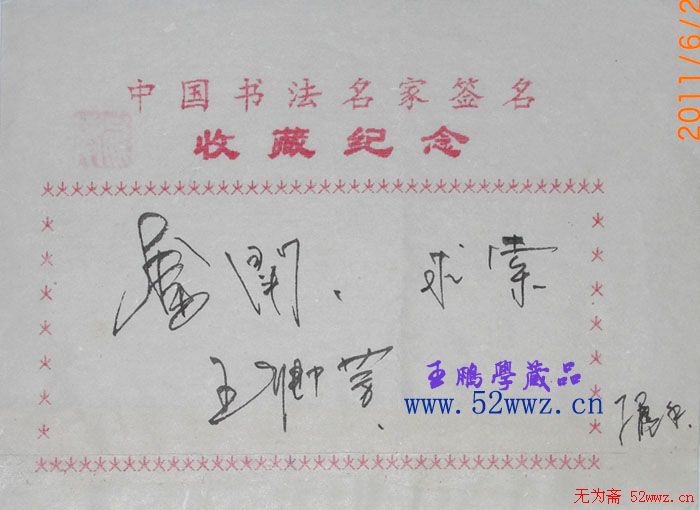 2011/6/2
中国书法名家签名
收藏纪念
求索
王
王鵬學藏品
www.52wwz.cn
无为斋 52wwz.cn